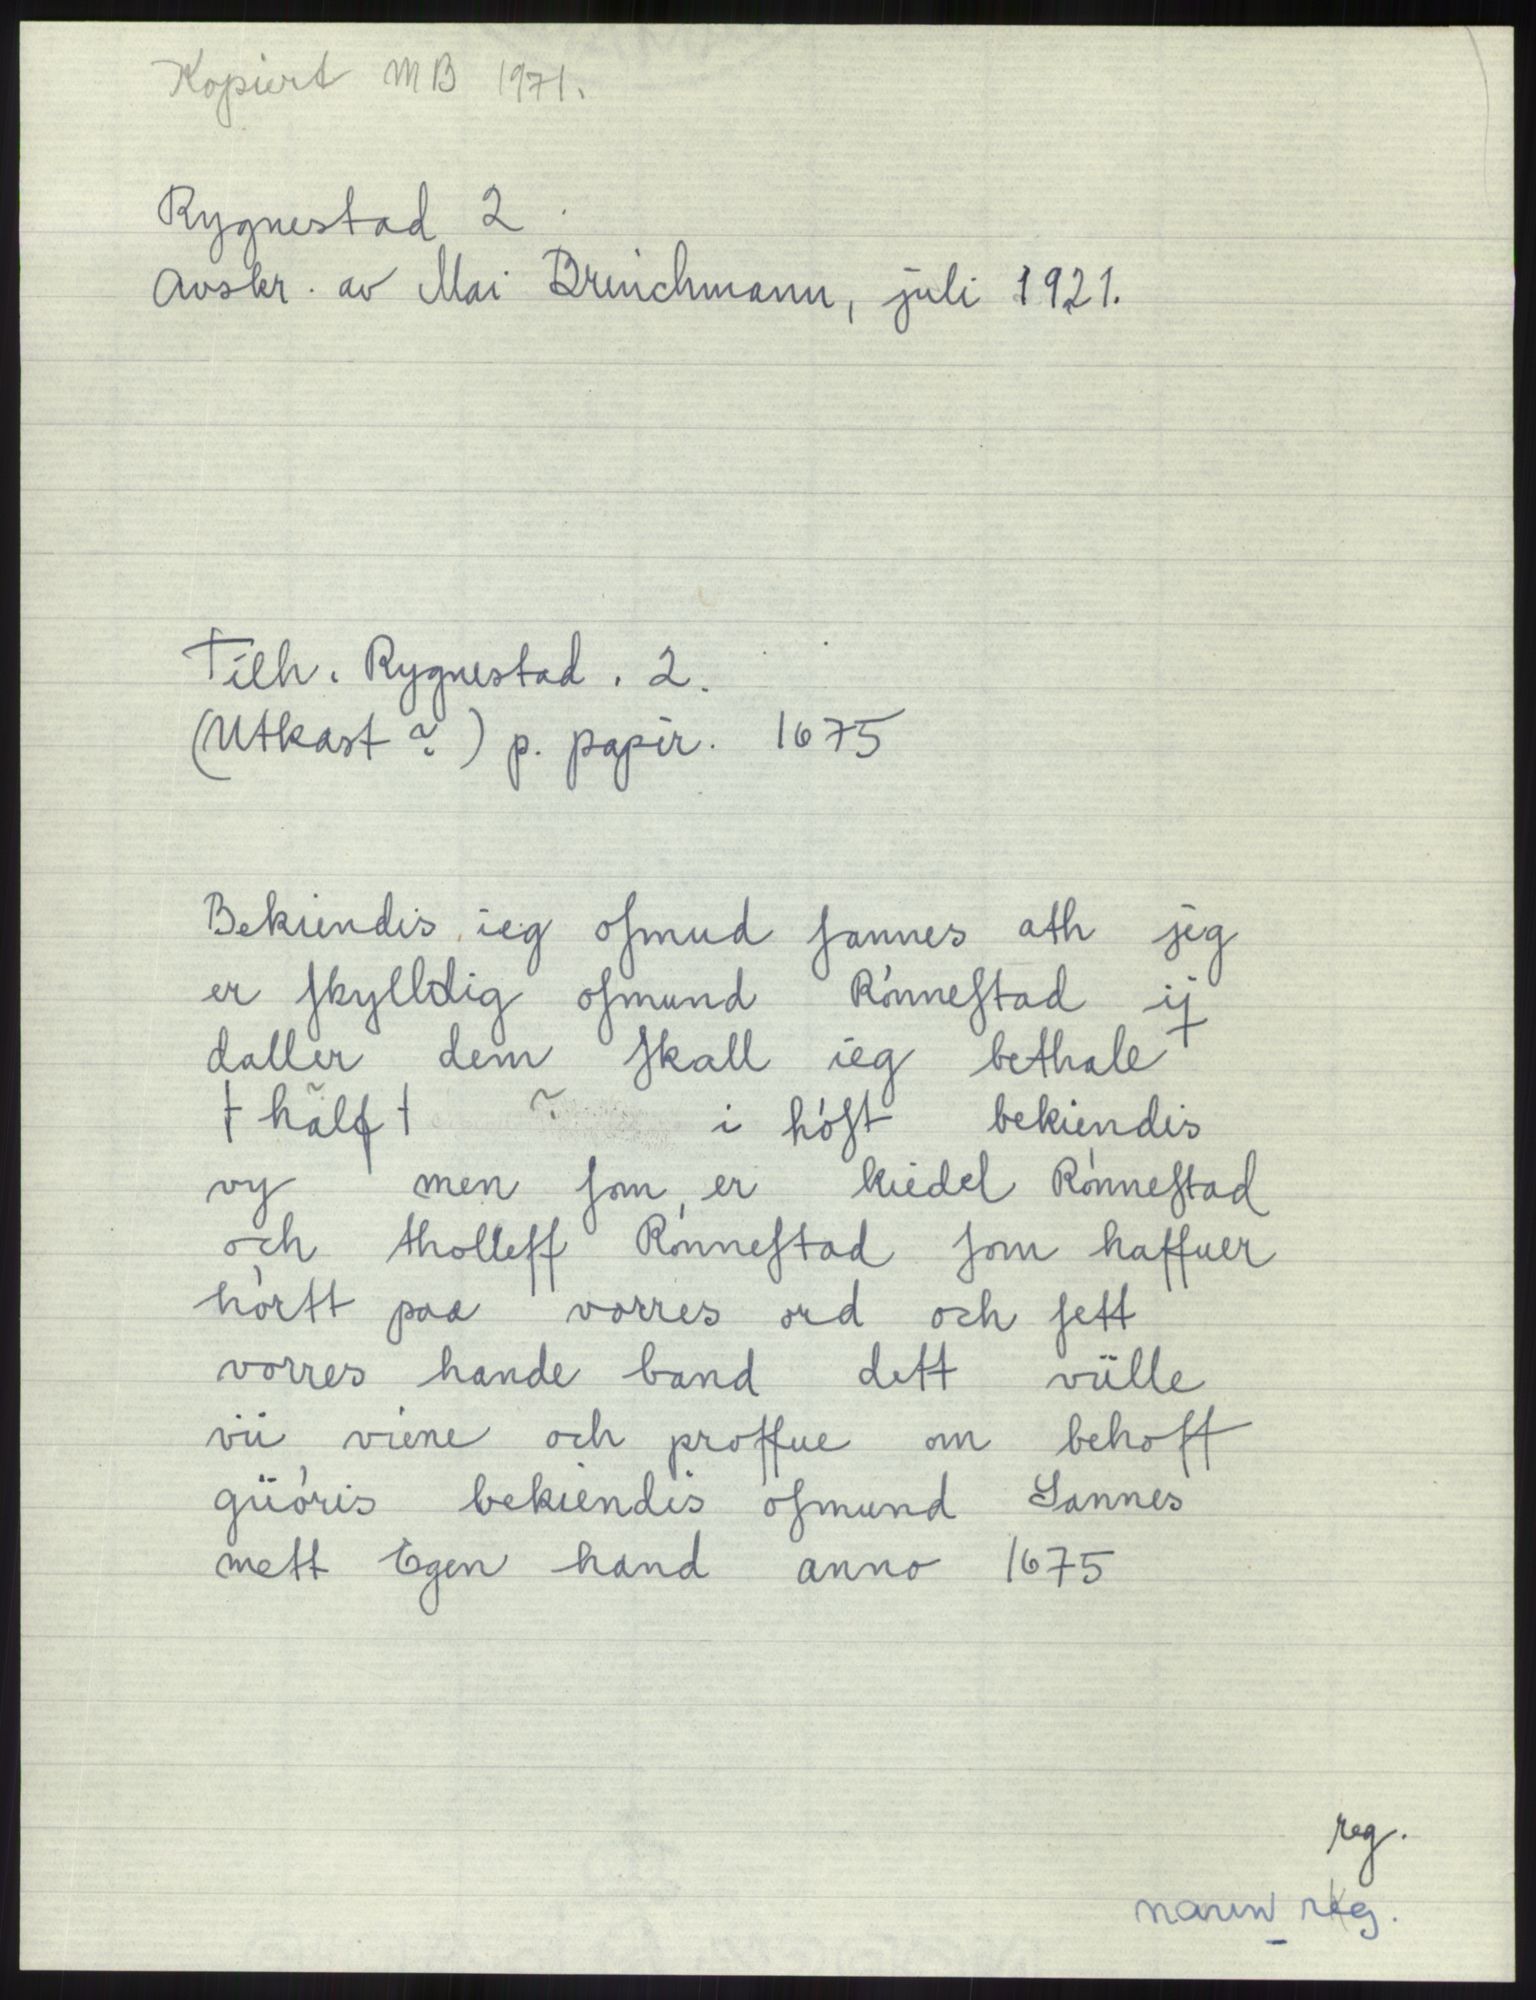 Kopiert MB 1971.
Rygnestad 2
Avskr. av Mai Brinchmann, juli 1921.
Tilh. Rygnestad. 2.
(Utkast?) p. papir. 1675
Bekiendis ieg oſmud ſannes ath jeg
er ſkylldig oſmund Rónneſtad ij
daller dem ſkall ieg bethale
† hãlft ~ i hóſt bekiendis
vy men ſom er kiedel Rónneſtad
och tholleff Rónneſtad ſom haffuer
hórtt paa vorres ord och ſett
vorres hande band dett vülle
vü viene och proffue om behoff
güóris bekiendis oſmund Sannes
mett Egen hand anno 1675
reg.
navnreg.